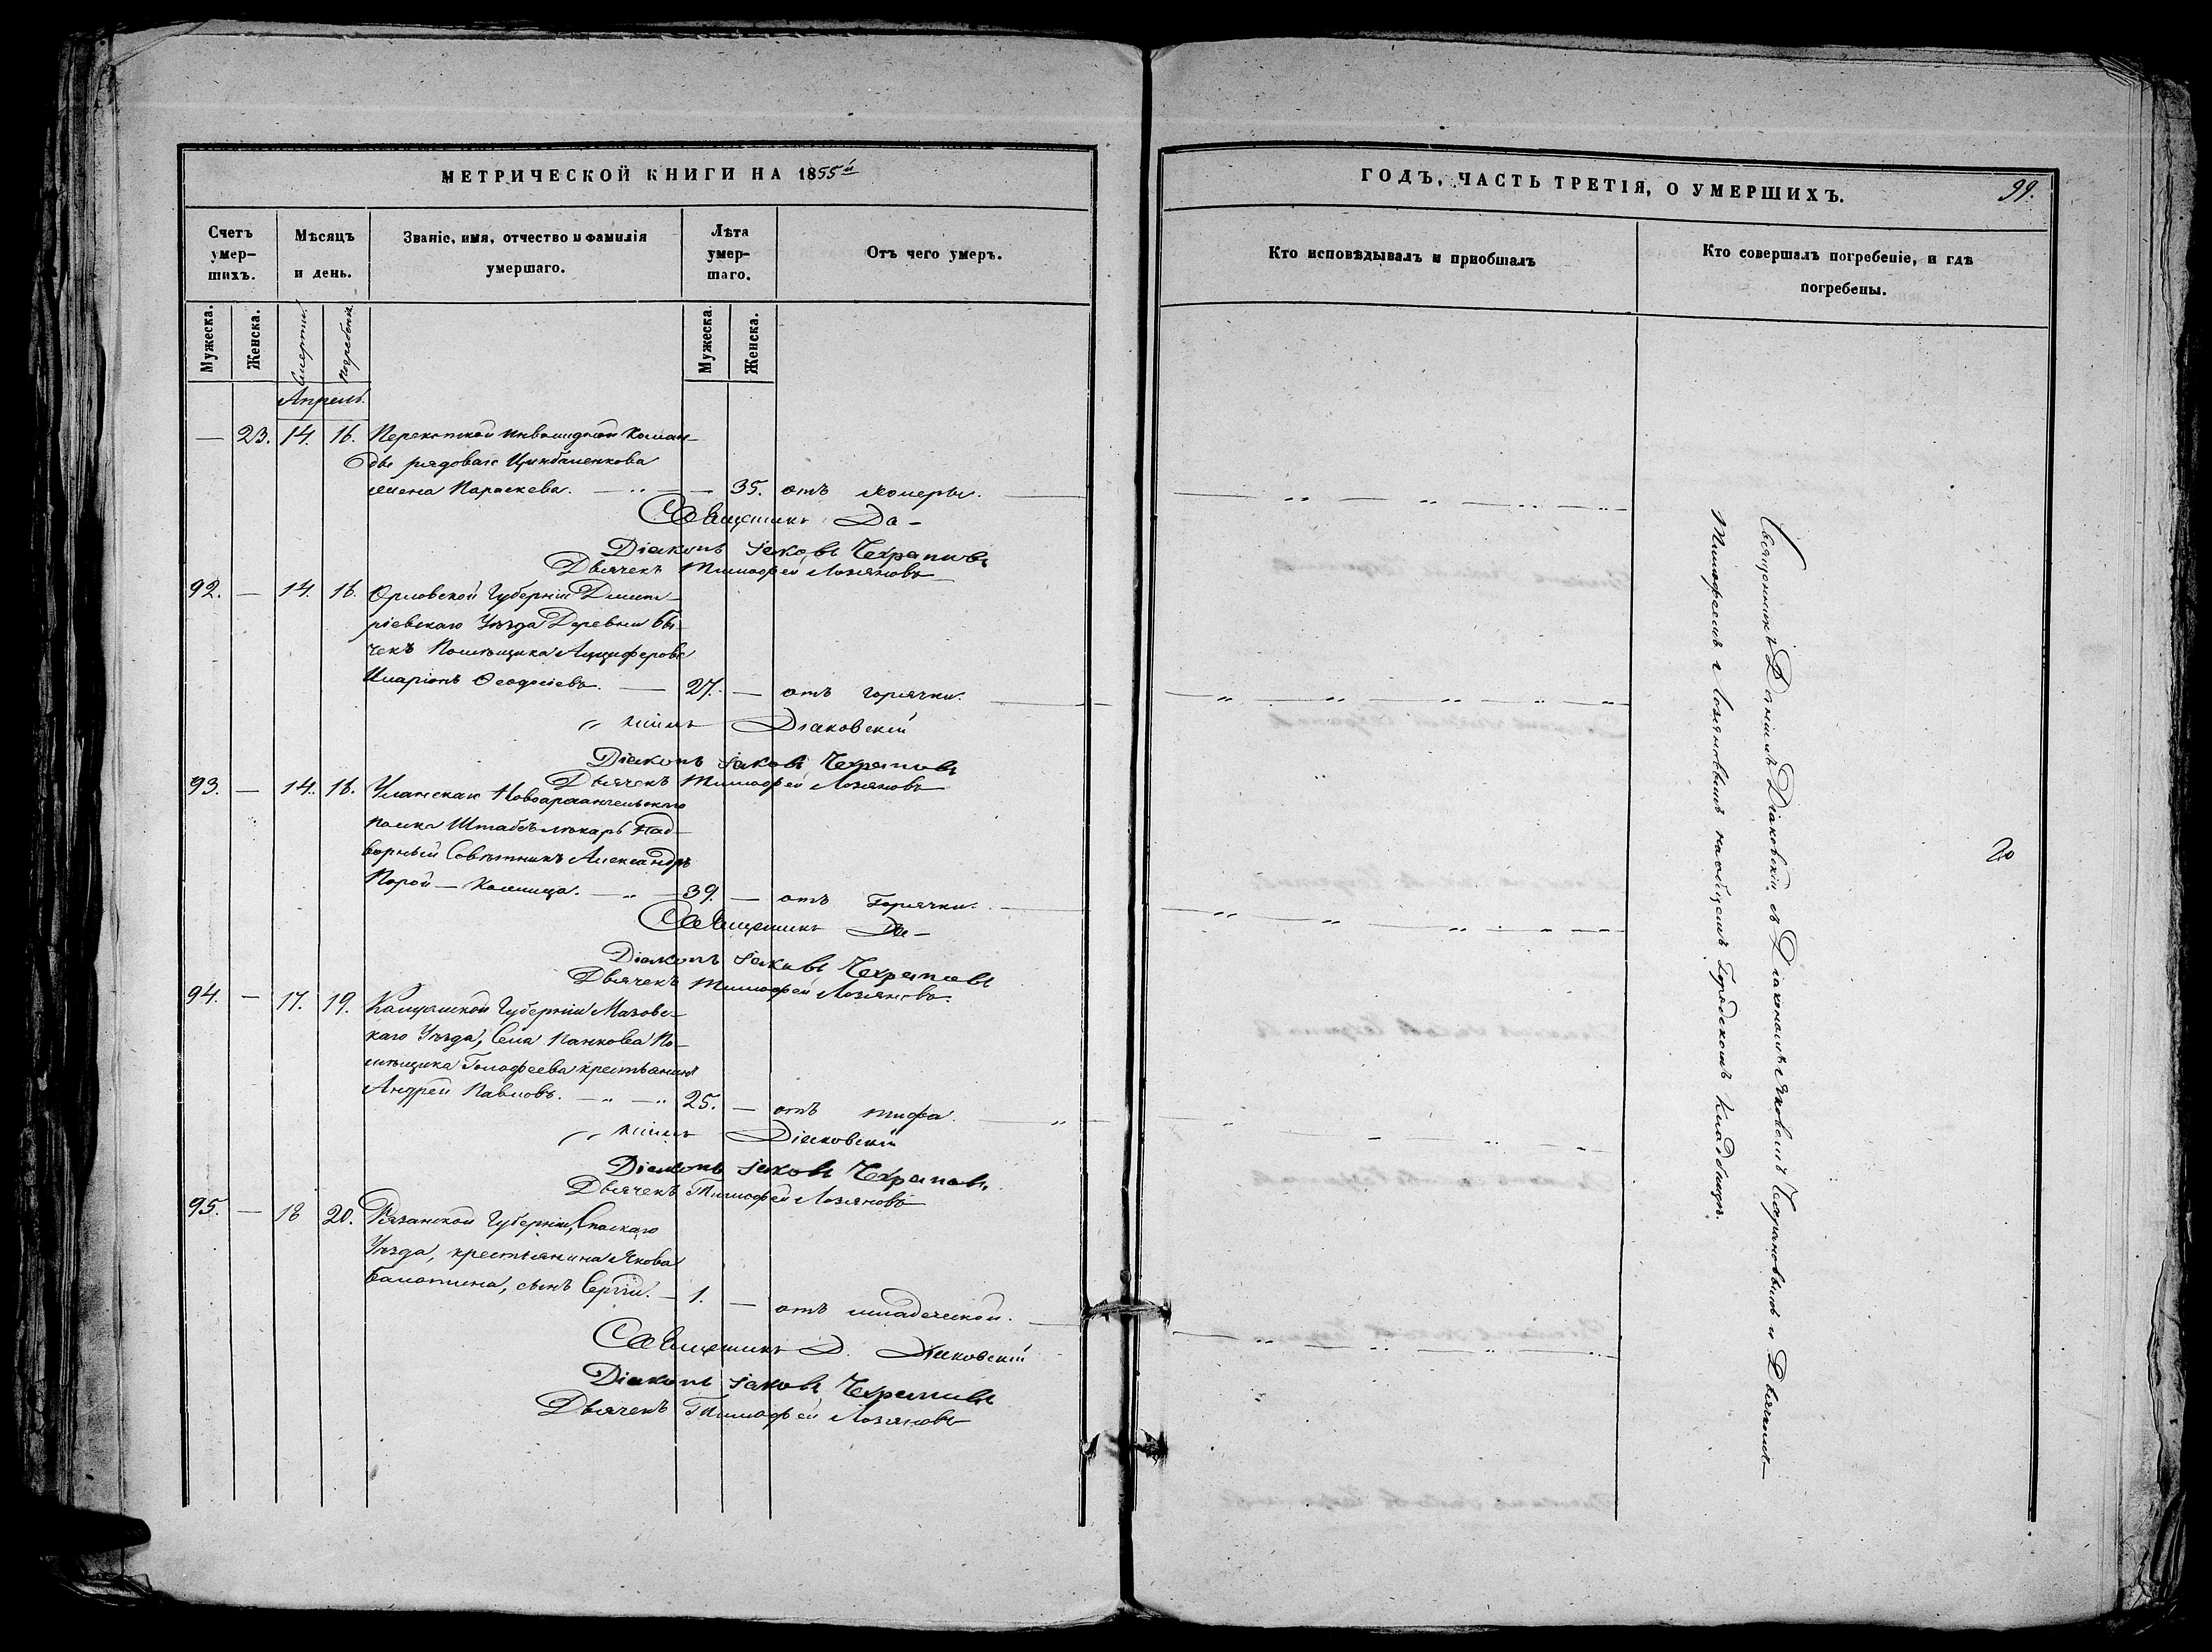 МЕТРИЧЕСКОЙ КНИГИ НА 1855й
Счетъ умер-шихъ.
Мѣсяцъ и день.
Званіе, имя, отчество и фамилія умершаго.
Лѣта умер-шаго.
Отъ чего умеръ.
Мужеска. Женска. Смерти. Погребенія. Мужеска. Женска.
Апрель.
— 23. 14. 16. Перекопской инвалидной коман-
ды рядоваго Цимбаленкова
жена Параскева. — 35. отъ холеры.
Священникъ Да-
Діаконъ Іаковъ Чехрановъ
Дьячекъ Тимофей Лозяновъ
92. — 14. 16. Орловской Губерніи Димит-
ріевскаго Уѣзда Деревни Бы-
чекъ Помѣщика Анциферова
Иларіонъ Ѳеодосіевъ. — 27. — отъ горячки.
ніилъ Діаковскій
Діаконъ Іаковъ Чехрановъ
Дьячекъ Тимофей Лозяновъ
93. — 14. 16. Уланскаго Новоархангельскаго
полка Штабъ-лѣкарь Над-
ворный Совѣтникъ Александръ
Порой — Кошица. — 39. — отъ Горячки.
Священникъ Да-
Діаконъ Іаковъ Чехрановъ
Дьячекъ Тимофей Лозяновъ
94. — 17. 19. Калужской Губерніи Мазовс-
каго Уѣзда, Села Панкова По-
мѣщика Голофеева крестьянинъ
Андрей Павловъ. — 25. — отъ тифа.
ніилъ Діаковскій
Діаконъ Іаковъ Чехрановъ
Дьячекъ Тимофей Лозяновъ
95. — 18 20. Рязанской Губерніи, Спаскаго
Уѣзда, крестьянина Якова
сынъ Сергій. — 1. — отъ младенческой.
Священникъ Д. Діаковскій
Діаконъ Іаковъ Чехрановъ
Дьячекъ Тимофей Лозяновъ
ГОДЪ, ЧАСТЬ ТРЕТІЯ, О УМЕРШИХЪ.
99.
Кто исповѣдывалъ и приобщалъ
Кто совершалъ погребеніе, и гдѣ
погребены.
Священникъ Даніилъ Діаковскій съ Діакономъ Яковомъ Чехрановымъ и Дьячкомъ
Тимофеемъ Лозяновымъ на общемъ Городскомъ Кладбищѣ.
20